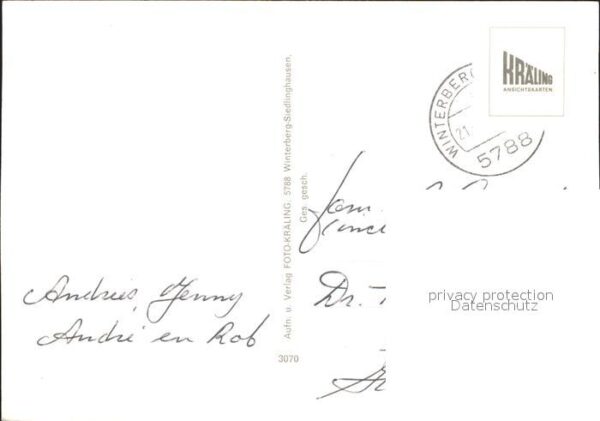 KRÄLING
ANSICHTSKARTEN
WINTERBERG
21
5788
Aufn. u. Verlag FOTO-KRÄLING, 5788 Winterberg-Siedlinghausen.
Ges. gesch.
3070
Andries, Jenny
André en Rob
Fam.
Dr.
privacy protection
Datenschutz